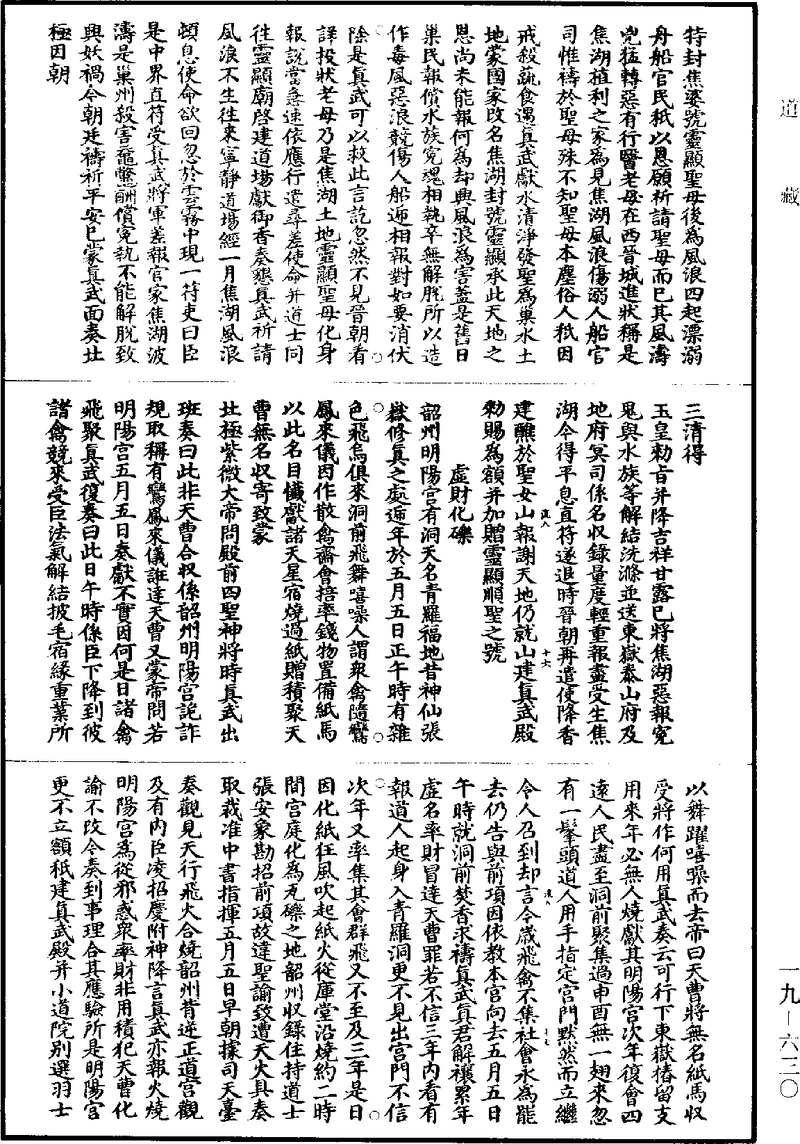 道藏
特封焦婆號靈顯聖母後為風浪四起漂溺
舟船官民祇以恩願祈請聖母而已其風濤
兇猛轉惡有行醫老母在西晉城進狀稱是
焦湖植利之家為見焦湖風浪傷溺人船官
司惟禱於聖母殊不知聖母本塵俗人秖因
戒殺蔬食遇真武獻水清淨發聖為巢水土
地蒙國家改名焦湖封號靈顯承此天地之
恩尚未能報何為却興風浪為害蓋是舊日
巢民報償水族冤魂相執卒無解脫所以造
作毒風惡浪競傷人船遞相報對如要消伏
除是真武可以救此言訖忽然不見晉朝看
詳投狀老母乃是焦湖土地靈顯聖母化身
報說當急速依應行遣尋差使命并道士同
往靈顯廟啓建道場獻御香奏懇真武祈請
風浪不生往來寧靜道場經一月焦湖風浪
頓息使命欲回忽於雲霧中現一符吏曰臣
是中界直符受真武將軍差報官家焦湖波
濤是巢州殺害黿鱉酬償冤執不能解脫致
興妖禍今朝廷禱祈平安已蒙真武面奏北
極因朝
三清得
玉皇勅旨并降吉祥甘露已將焦湖惡報冤
鬼與水族等解結洗滌並送東嶽泰山府及
地府冥司係名収録量度輕重報盡受生焦
湖今得平息直符遂退時晉朝再遣使降香
建醮於聖女山報謝天地仍就山建真武殿
勅賜為額并加贈靈顯順聖之號
虛財化礫
韶州明陽宮有洞天名青羅福地昔神仙張
嶽修真之處逓年於五月五日正午時有雜
色飛鳥俱來洞前飛舞嘻噪人謂衆禽隨鸞
鳳來儀因作散禽齋會掊率錢物置備紙馬
以此名目懺獻諸天星宿燒過紙贈積聚天
曹無名収寄致蒙
北極紫微大帝問殿前四聖神將時真武出
班奏曰此非天曹合収係韶州明陽宮詭詐
規取稱有鸞鳳來儀誑達天曹又蒙帝問若
明陽宮五月五日奏獻不實因何是日諸禽
飛聚真武復奏曰此日午時係臣下降到彼
諸禽競來受臣法氣解結披毛宿緣重業所
以舞躍嘻噪而去帝曰天曹將無名紙馬収
受將作何用真武奏云可行下東嶽樁留支
用來年必無人燒獻其明陽宮次年復會四
遠人民盡至洞前聚集過申酉無一翅來忽
有一髼頭道人用手指定宮門默然而立繼
令人召到却言今歲飛禽不集社會永為罷
去仍告與前項因依教本宮向去五月五日
午時就洞前焚香求禱真武真君解禳累年
虛名率財冒達天曹罪若不信三年內看有
報道人起身入青羅洞更不見出宮門不信
次年又率集其會群飛又不至及三年是日
因化紙狂風吹起紙火從庫堂沿燒約二時
間宮庭化為瓦礫之地韶州収錄住持道士
張安象勘招前項故違聖諭致遭天火具奏
取裁准中書指揮五月五日早朝據司天臺
奏觀見天行飛火合燒韶州背逆正道宮觀
及有內臣凌招慶附神降言真武亦報火燒
明陽宮為從邪惑衆率財非用積犯天曹化
諭不改令奏到事理合其應驗所是明陽宮
更不立額秖建真武殿并小道院別選羽士
一九-六三〇